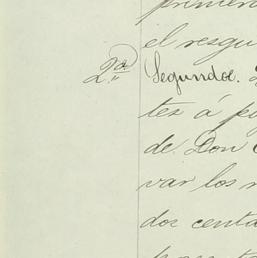 primera
el resgu
2ª. Segundo.
tes á po
de Don
var los
dos centa